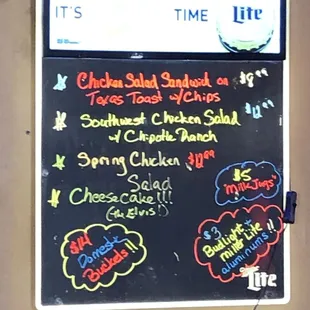 IT'S TIME Lite
Chicken Salad Sandwich on $8.99
Texas Toast w/ Chips
Southwest Chicken Salad $12.99
w/ Chipotle Ranch
Spring Chicken $12.99
Salad
Cheesecake!!!
(the Elvis!)
$5
Milk Jugs
$14
Domestic
Buckets!!
$3
Bud Light +
Miller Lite !!
aluminums
Lite